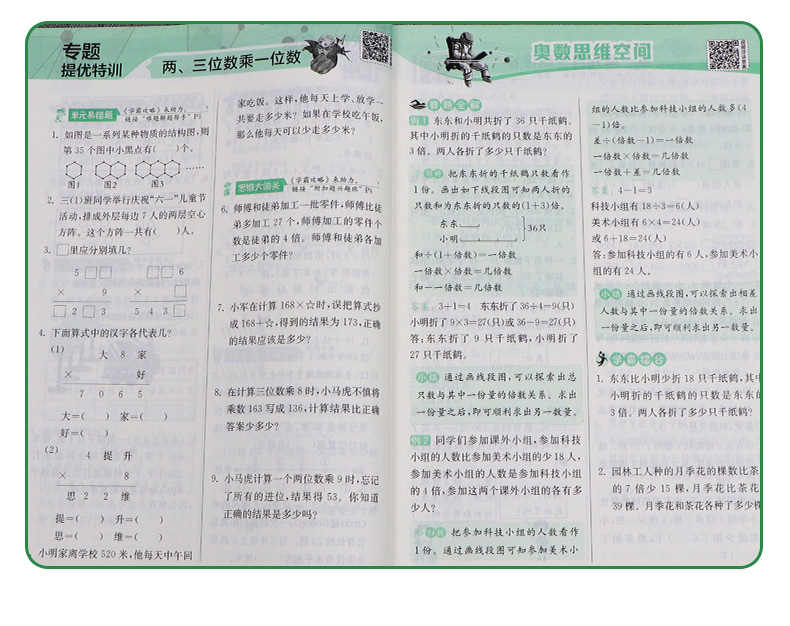 专题
提优特训
两、三位数乘一位数
单元易错题
《学霸攻略》来助力,
链接“难题解题帮手”P3
1. 如图是一系列某种物质的结构图,则
第 35 个图中小黑点有(  )个。
……
图1 图2 图3
2. 三(1)班同学举行庆祝“六一”儿童节
活动,排成外层每边 7 人的两层空心
方阵。这个方阵一共有(  )人。
3. □里应分别填几?
5□□ □□6
× 9 × □
5□2□3 5 4 3□
4. 下面算式中的汉字各代表几?
(1)
大 8 家
× 好
7 0 6 5
大=(  ) 家=(  )
好=(  )
(2)
4 提 升
× 8
思 2 2 维
提=(  ) 升=(  )
思=(  ) 维=(  )
小明家离学校 520 米,他每天中午回
家吃饭。这样,他每天上学、放学一
共要走多少米?如果在学校吃午饭,
那么他每天可以少走多少米?
思维大闯关
《学霸攻略》来助力,
链接“附加题兴趣班”P4
6. 师傅和徒弟加工一批零件,师傅比徒
弟多加工 27 个,师傅加工的零件个
数是徒弟的 4 倍。师傅和徒弟各加
工多少个零件?
7. 小军在计算 168×☆时,误把算式抄
成 168+☆,得到的结果为 173,正确
的结果应该是多少?
8. 在计算三位数乘 8 时,小马虎不慎将
乘数 163 写成 136,计算结果比正确
答案少多少?
9. 小马虎计算一个两位数乘 9 时,忘记
了所有的进位,结果得 53。你知道
正确的结果是多少吗?
奥数思维空间
视频讲讲答案
真题全解
例1 东东和小明共折了 36 只千纸鹤。
其中小明折的千纸鹤的只数是东东的
3 倍。两人各折了多少只千纸鹤?
把东东折的千纸鹤只数看作
1份。画出如下线段图可知两人折的
只数和为东东折的只数的(1+3)倍。
东东
36只
小明
和÷(1+倍数)=一倍数
一倍数×倍数=几倍数
和-一倍数=几倍数
答案:3+1=4 东东折了 36÷4=9(只)
小明折了 9×3=27(只)或 36-9=27(只)
答:东东折了 9 只千纸鹤,小明折了
27 只千纸鹤。
小结 通过画线段图,可以探索出总
只数与其中一份量的倍数关系。求出
一份量之后,即可顺利求出另一数量。
例2 同学们参加课外小组,参加科技
小组的人数比参加美术小组的少 18 人,
参加美术小组的人数是参加科技小组
的 4 倍,参加这两个课外小组的各有多
少人?
把参加科技小组的人数看作
1份。通过画线段图可知参加美术小
组的人数比参加科技小组的人数多(4
-1)倍。
差÷(倍数-1)=一倍数
一倍数×倍数=几倍数
一倍数+差=几倍数
答案:4-1=3
科技小组有 18÷3=6(人)
美术小组有 6×4=24(人)
或 6+18=24(人)
答:参加科技小组的有 6 人,参加美术小
组的有 24 人。
小结 通过画线段图,可以探索出相差
人数与其中一份量的倍数关系。求出
一份量之后,即可顺利求出另一数量。
学霸擂台
1. 东东比小明少折 18 只千纸鹤,其中
小明折的千纸鹤的只数是东东的
3 倍。两人各折了多少只千纸鹤?
2. 园林工人种的月季花的棵数比茶
的 7 倍少 15 棵,月季花比茶花
39棵。月季花和茶花各种了多少棵